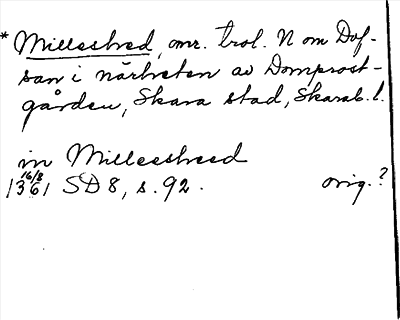 * Milleshed, omr. trol. N om Dof-
san i närheten av Domprost-
gården, Skara stad, Skarab. l.
in Millesheed
16/8
1361 SD 8, s. 92. orig.?